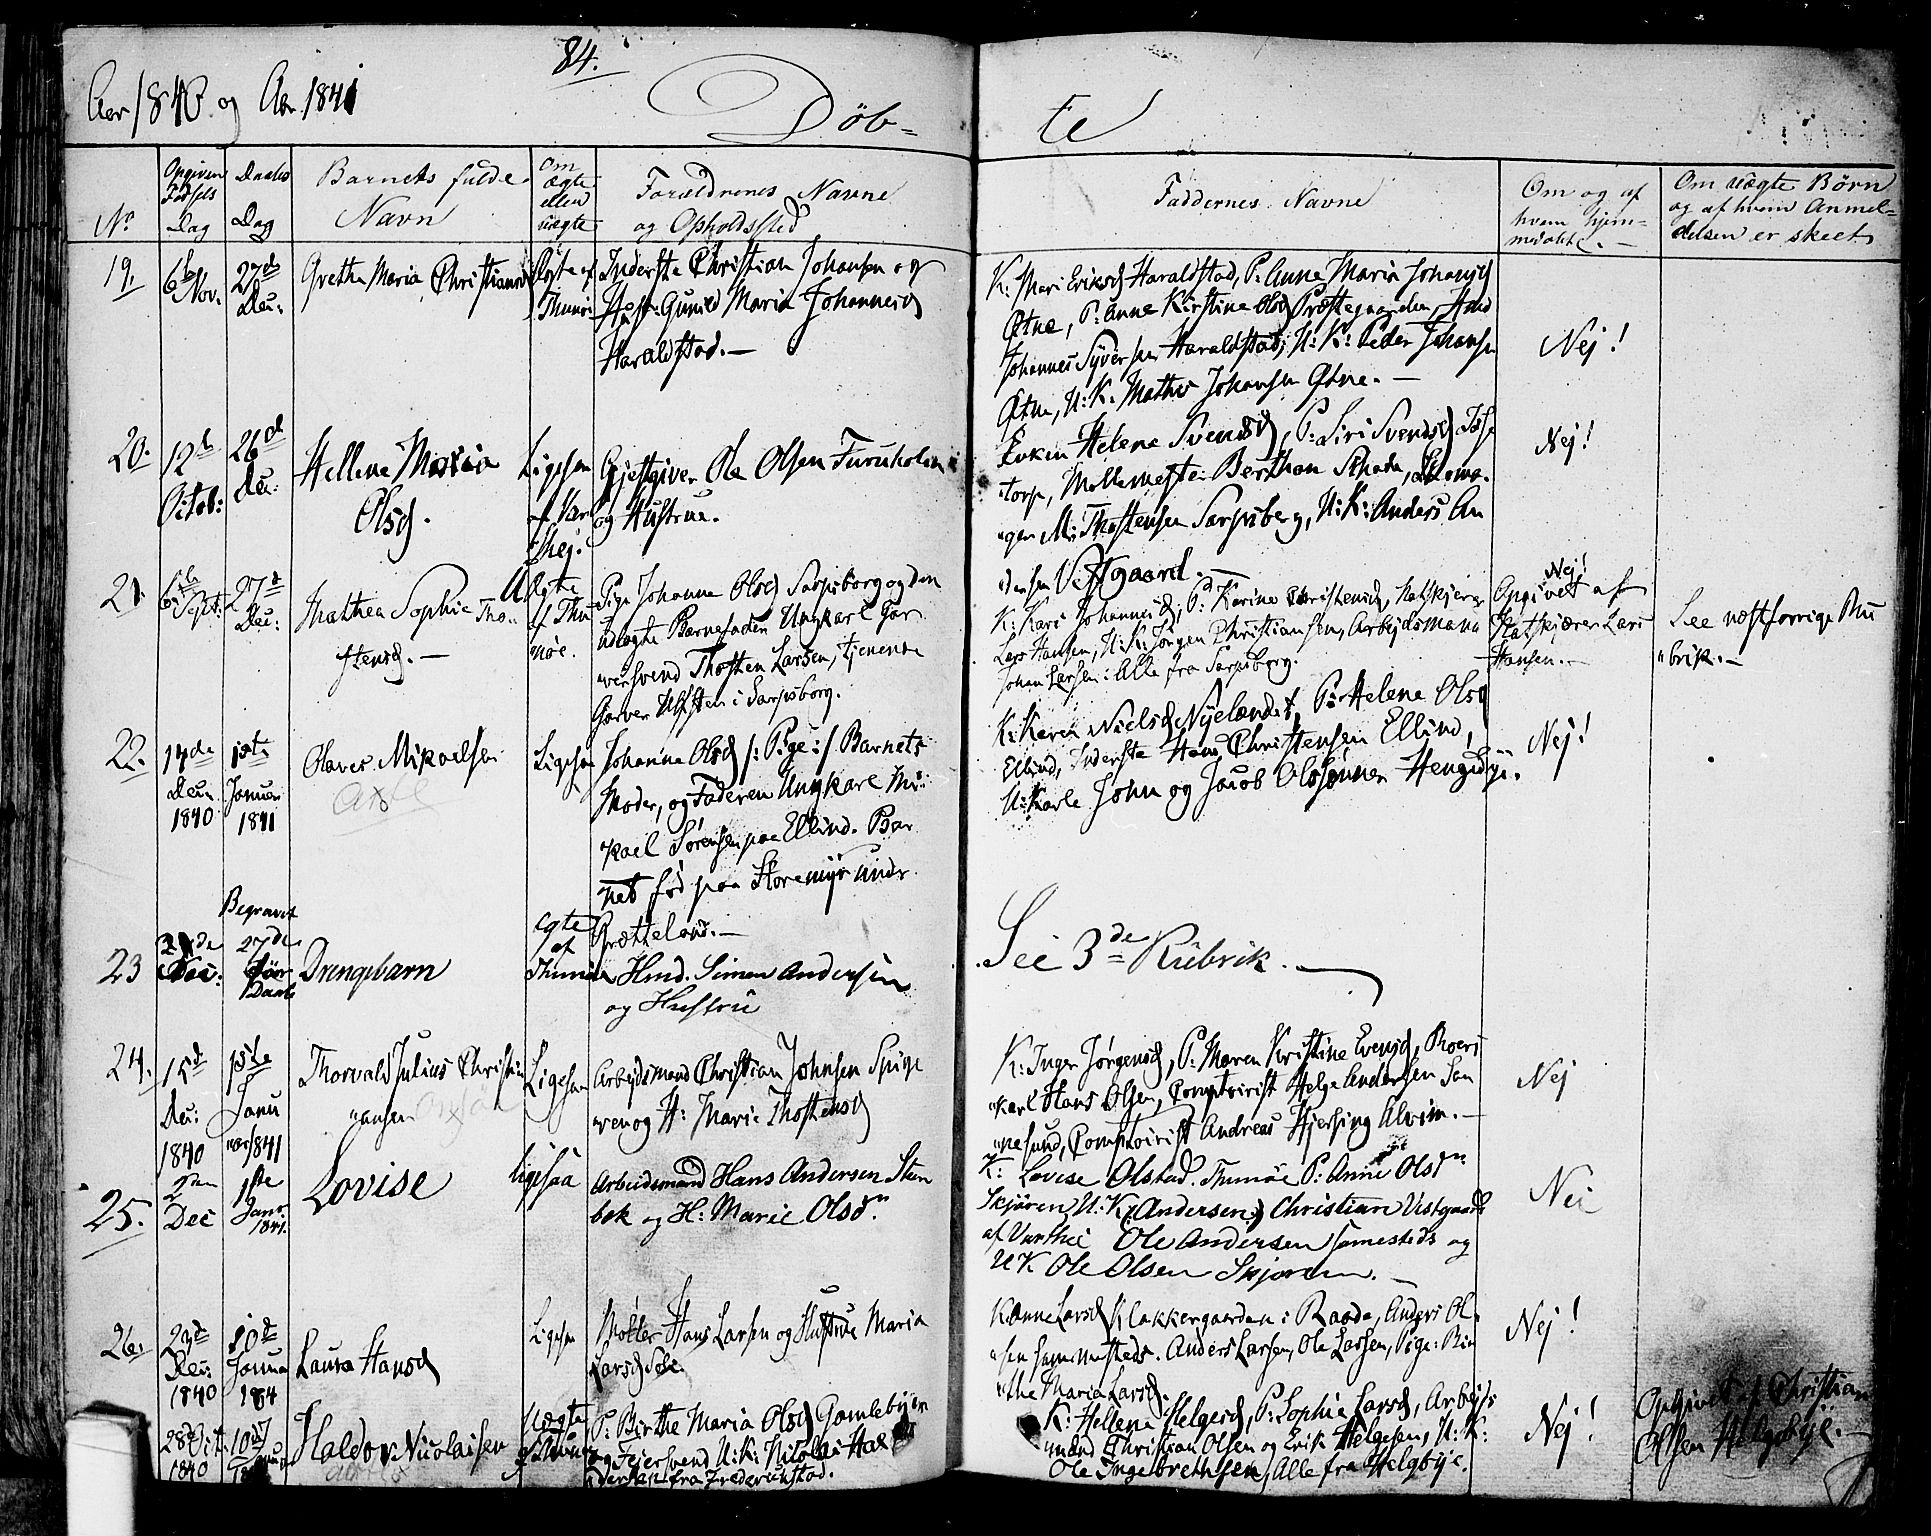 84.
Aar 1840. og Aar. 1841
Döb=
te
No
Opgiven Fødsels Dag
Daabs Dag
Barnets fulde Navn
Om ægte eller uægte
Forældrenes Navne og Opholdssted
Faddernes Navne
Om og af hvem hjem=
Om uægte Børn og af hvem Anmel=
delsen er skeet
19.
6te Nov:
27de Dec:
Grethe Maria Christiansd
Ægte af Thunö
Inderste Christian Johansen og
Hust: Gunild Maria Johannesd
Haraldstad.—
K: Mari Eriksd Haraldstad, P: Anne Maria Johansd
Østne, P: Anne Kirstine Olsd Præstegaarden, Hmd
Johannes Syversen Haraldstad, U: K: Peder Johansen
Østne, U: K. Mathis Johansen Østne.—
Nej!
20.
12te Octob:
26de Dec:
Hellene Maria
Olsd.
Ligesaa af Var
thej.
Gjestgiver Ole Olsen Furuholm
og Hustrue.
Enken Helene Svendsd, P: Siri Svendsd Tose
torp, Møllemester Berthon Schade,
M: Thostensen Sarpsborg, U: K: Anders An
dersen Vestgaard.—
Nej!
21.
6te Sept:
27de Dec:
Mathea Sophie Tho=
stensd.—
Uægte
af Thu
nöe.
Pige Johanne Olsd Sarpsborg og den
udlagte Barnefader Ungkarl Gar
versvend Thosten Larsen, tjenende
Garver i Sarpsborg.
K: Kari Johannesd, P: Karine Christensd, Natskjærer
Lars Hansen, U: K: Jørgen Christiansen, Arbejdsmand
Johan Larsen: Alle fra Sarpsborg.
Nej!
Opgivet af
Natskjærer Lars
Hansen.—
See næstforrige Ru
brik.—
22.
14de Decm 1840
1ste Januar 1841
Olaves Mikaelsen
Ligesaa
Johanne Olsd /: Pige :/ Barnets
Moder, og Faderen Ungkarl Mi=
kael Sørensen paa Ellind. Bar
net fød paa Storemyr under
Grætteland.—
K: Karen Nielsd Nyelændet, P: Helene Olsd
Ellind, Inderste Hans Christensen Ellind,
U: Karle John og Jacob Olssønner
Nej!
23
Dec:
Begravet
27de
Drengebarn
Egte
af
Thunöe
Hmd. Simen Andersen
og Hustrü
See 3de Rübrik.—
24.
15de Dec: 1840
1ste Janu
ar 1841
Thorvald Julius Christi
ansen
Ligesaa
Arbejdsmand Christian Johnsen Spige
ren og H: Marie Thostensd
K: Inger Jørgensd, P: Maren Kirstine Evensd,
karl Hans Olsen, Comptoirist Helge Andersen San
nesund, Comptoirist Andreas Hjersing Alvim.—
Nej
25.
2den Dec
1ste Janr 1841.
Lovise
ligesaa
Arbeidsmand Hans Andersen Sten
bæk og H: Marie Olsdr.
K: Lovise Olstad. Thunöe P: Anne Olsdr
Skjören, U: K (Andersen) Christian Vestgaard
af Varthei Ole Andersen sammesteds og
U K Ole Olsen Skjoren.—
Nei
26.
23de Dec: 1840
10de Janua 184
Laura Hansd
Ligesaa
Møller Hans Larsen og Hustrue Maria
Larsd
K: Anne Larsd Klakkergaarden i Raade, Anders Ol=
sen sammesteds. Anders Larsen, Ole Larsen, Pige: Bir
the Maria Larsd.
Nej!
28de Oct. 1840
10de
Haldor Nicolaisen
Uægte
af Thunö
P: Birthe Maria Olsd Gamlebyen
og Fejersvend U: K: Nicolai Hal
dersen fra Frederikstad.
K: Hellene Helgesd, P: Sophie Larsd, Arbejds
mænd Christian Olsen og Erik Helgesen, U: K:
Ole Ingebrethsen, Alle fra Helgbye.
Nej!
Opgivet af Christian
Olsen Helgebye.—